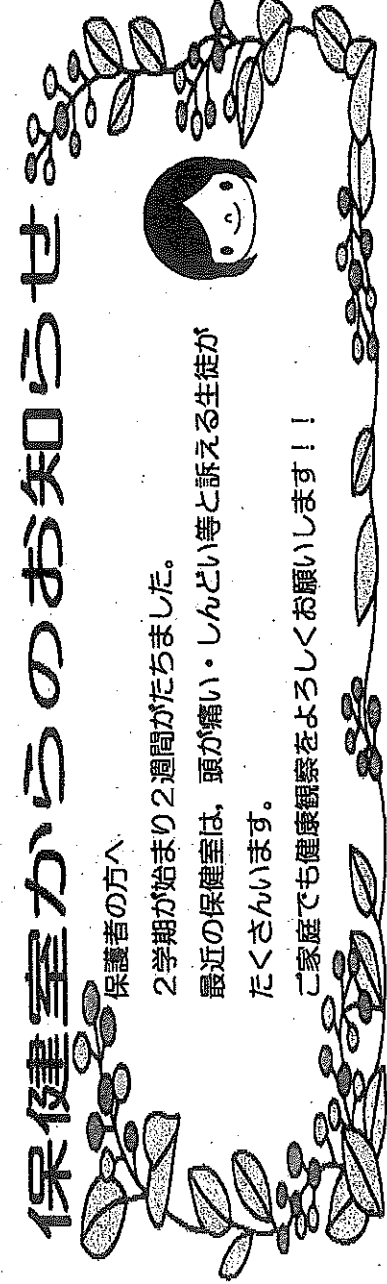 保健室からのお知らせ
保護者の方へ
2学期が始まり2週間がたちました。
最近の保健室は，頭が痛い・しんどい等と訴える生徒が
たくさんいます。
ご家庭でも健康観察をよろしくお願いします！！